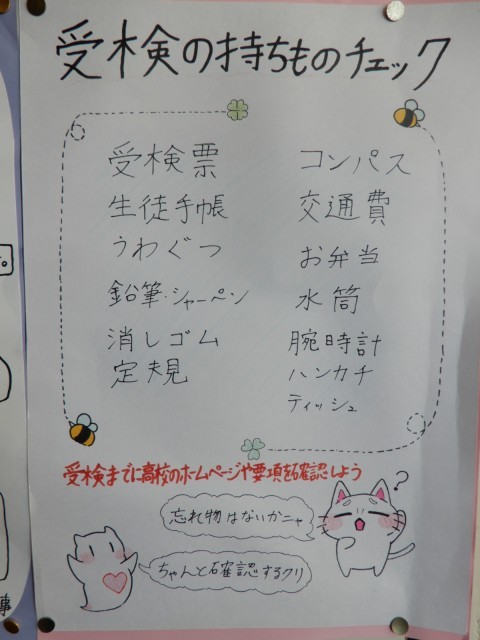 受検の持ちものチェック
受検票
生徒手帳
うわぐつ
鉛筆・シャーペン
消しゴム
定規
コンパス
交通費
お弁当
水筒
腕時計
ハンカチ
ティッシュ
受検までに高校のホームページや要項を確認しよう
?
忘れ物はないかニャ
ちゃんと確認するクリ
事